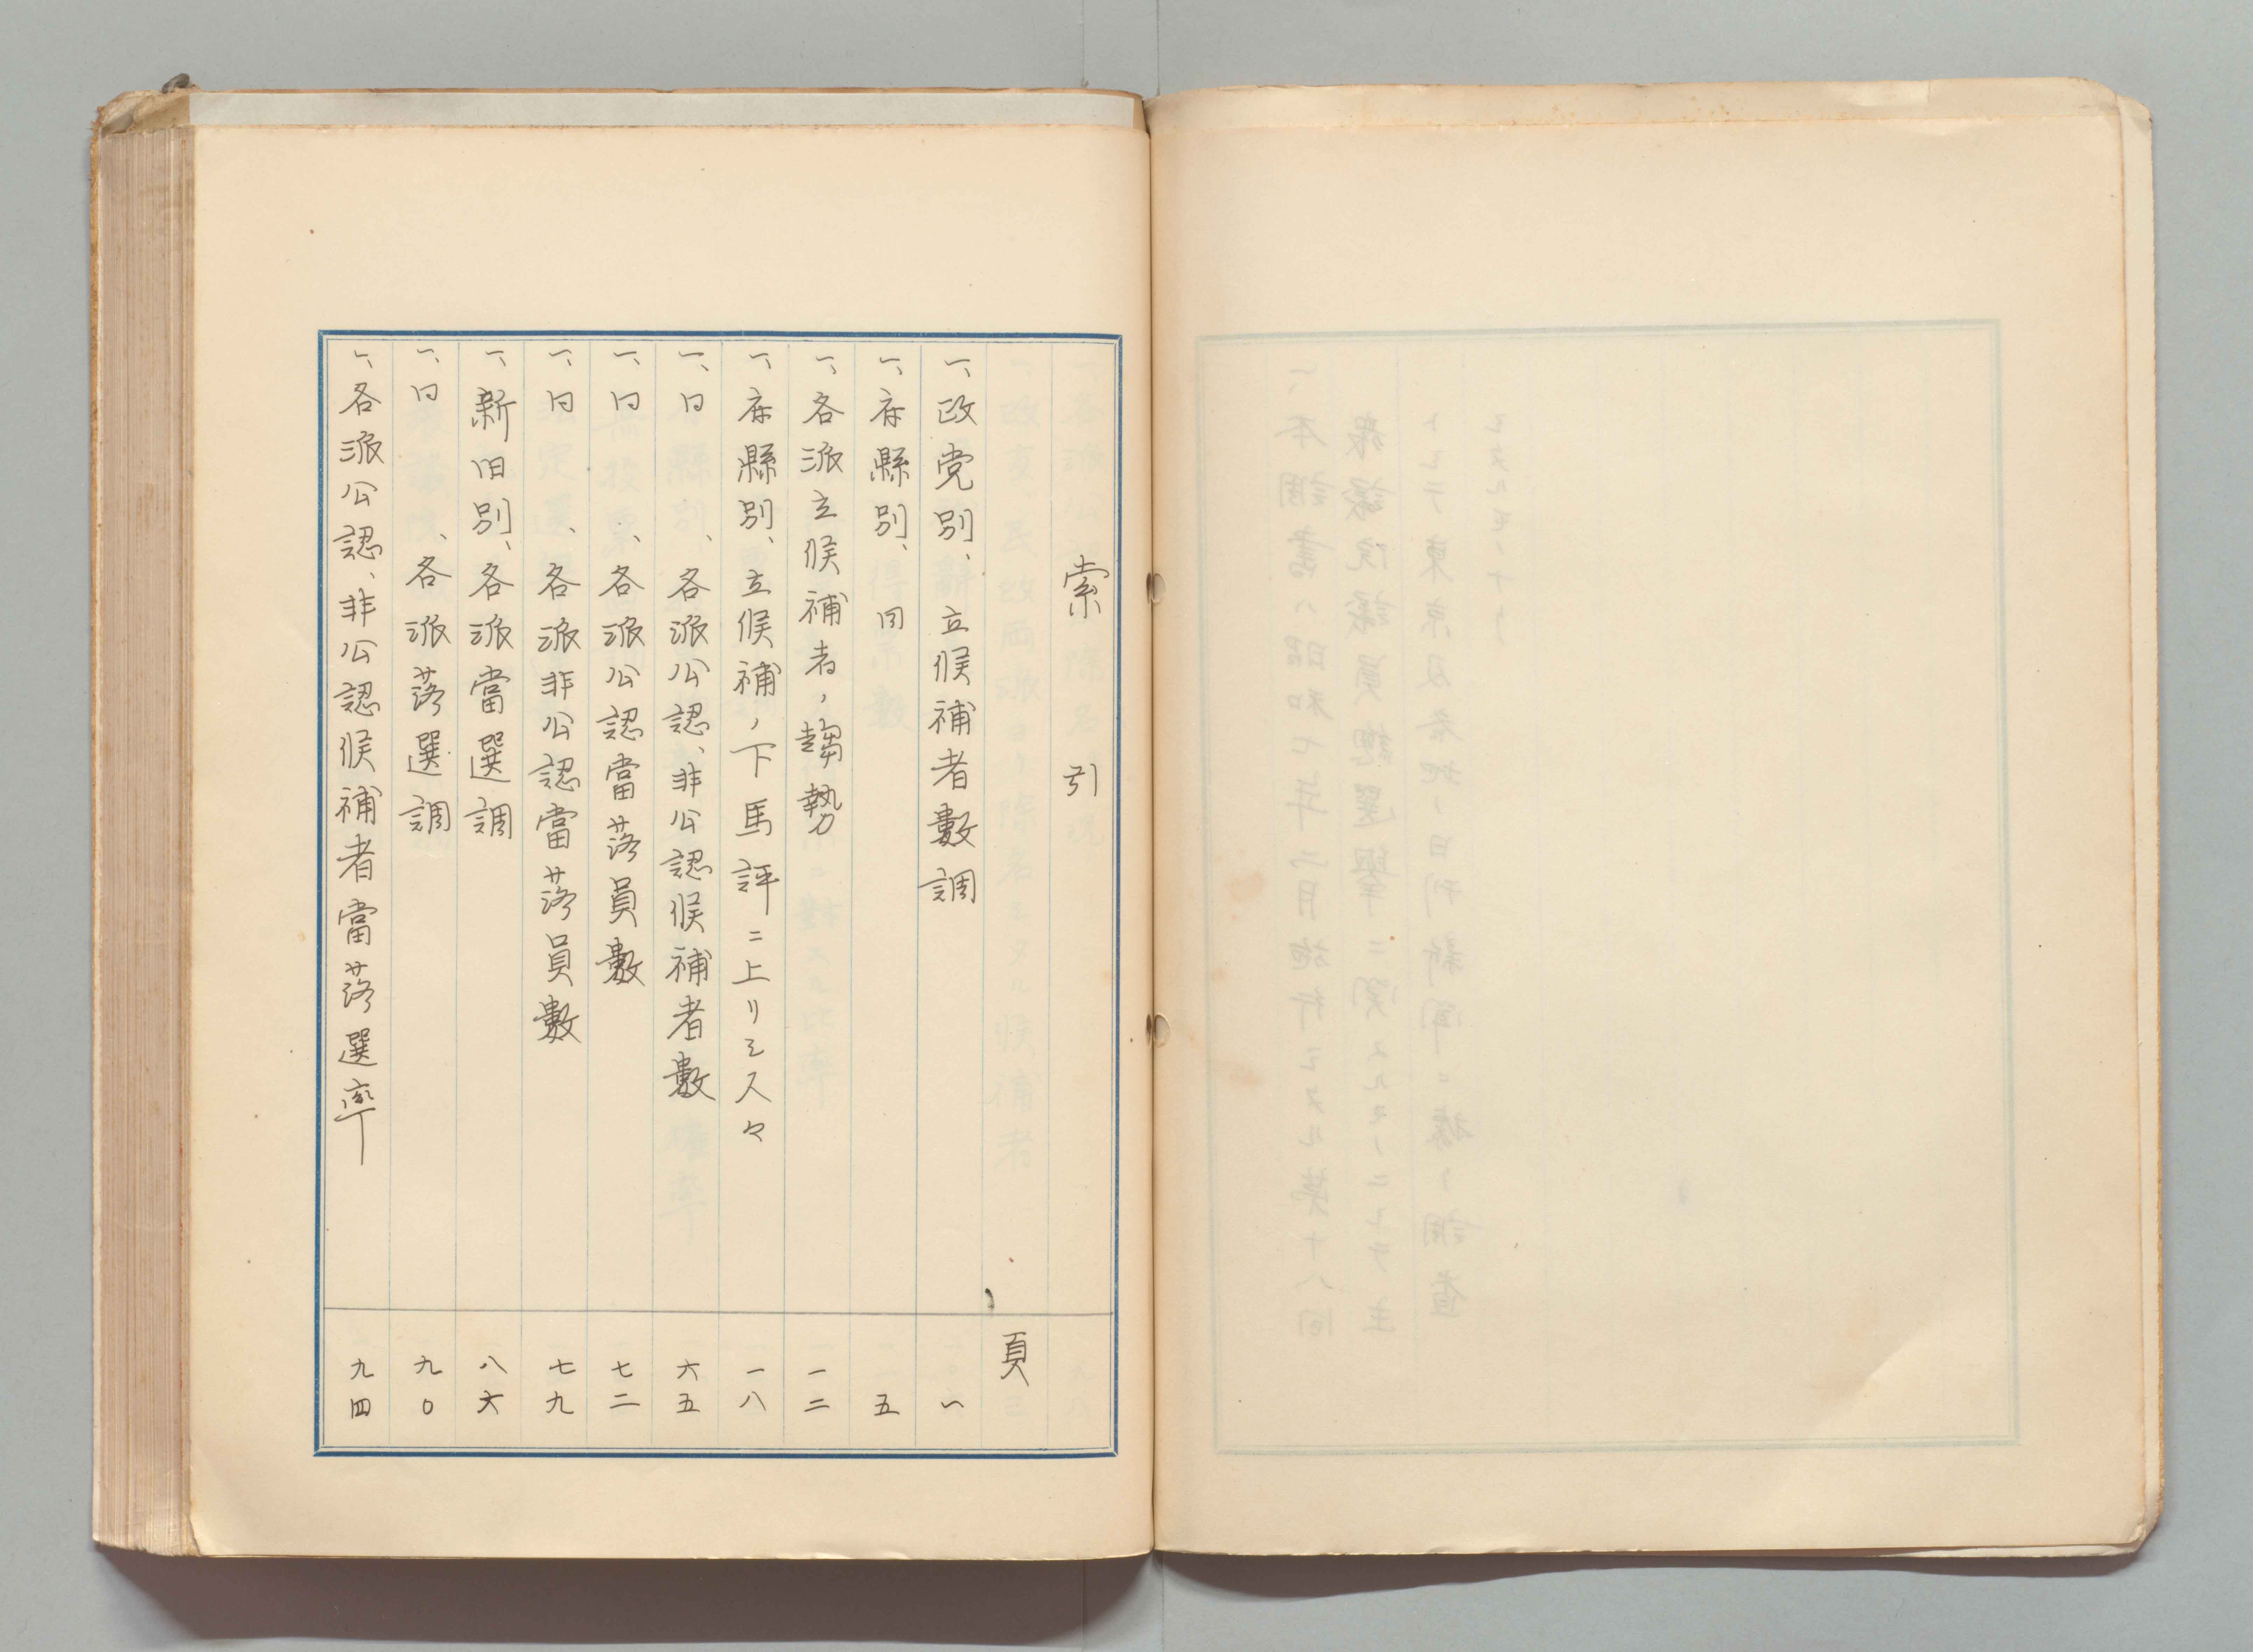 索引
頁
一、政党別、立候補者數調 一
一、府縣別、同 五
一、各派立候補者ノ趨勢 一二
一、府縣別、立候補ノ下馬評ニ上リシ人々 一八
一、同、各派公認、非公認候補者數 六五
一、同、各派公認當落員數 七二
一、同、各派非公認當落員數 七九
一、新旧別、各派當選調 八六
一、同、各派落選調 九〇
一、各派公認、非公認候補者當落選率 九四